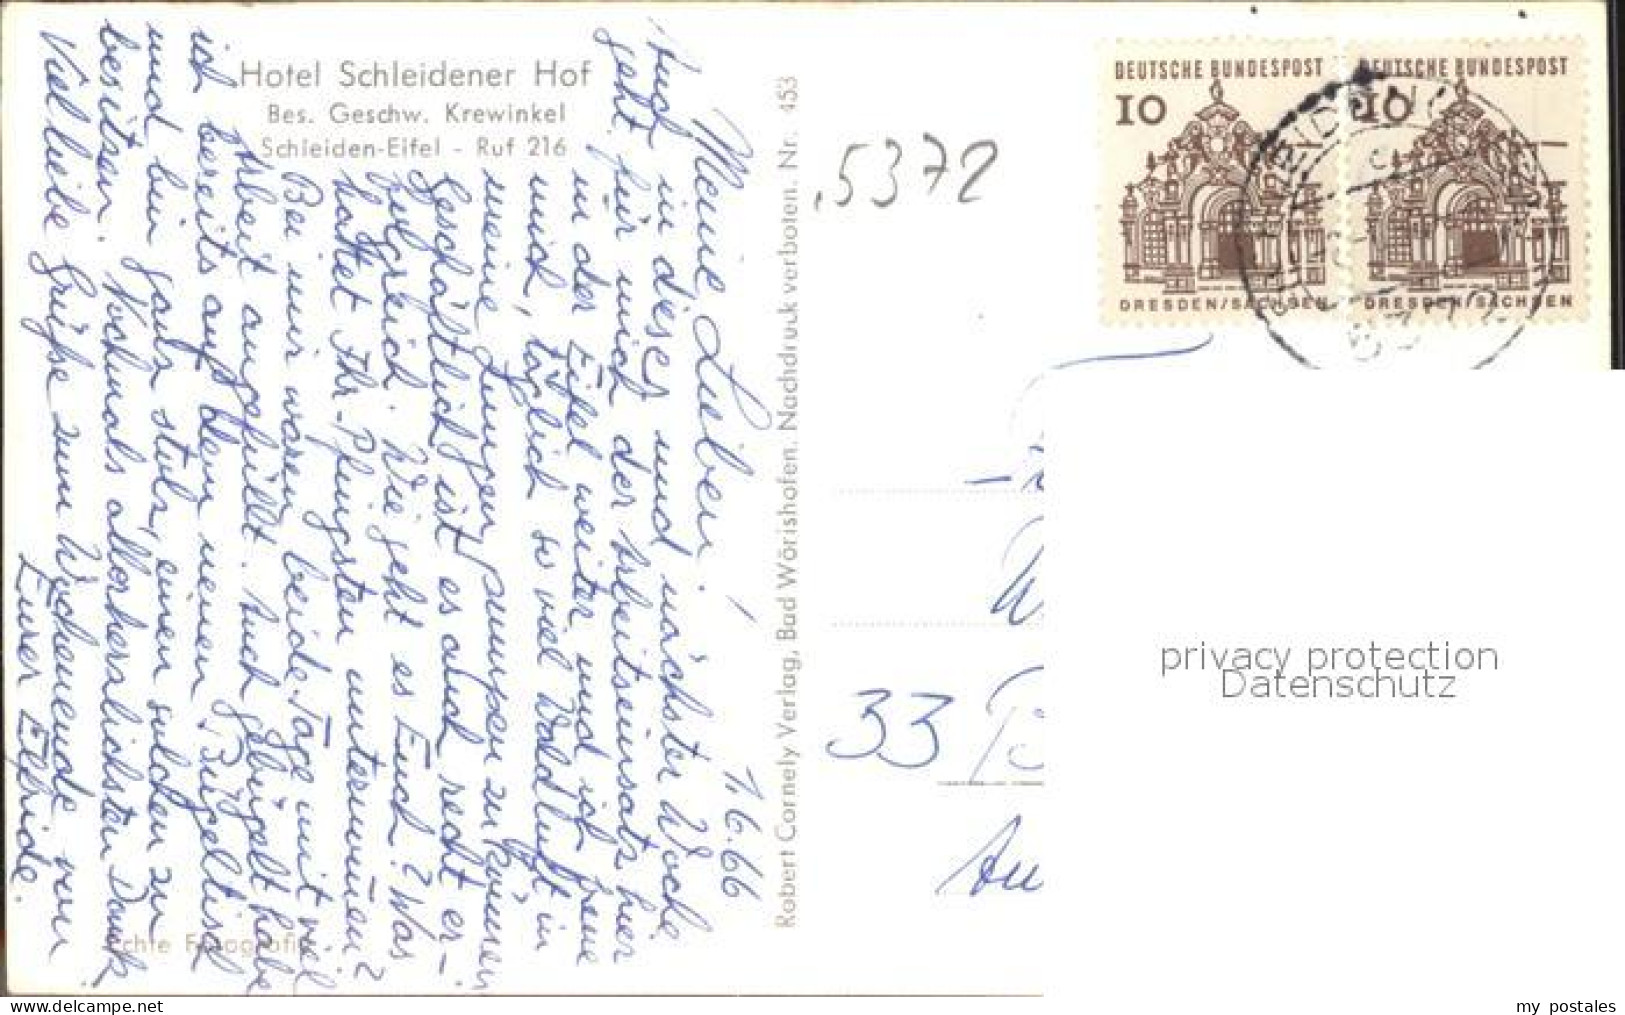 Hotel Schleidener Hof
Bes. Geschw. Krewinkel
Schleiden-Eifel - Ruf 216
Echte Fotografie
Robert Cornely Verlag, Bad Wörishofen. Nachdruck verboten. Nr. 453
1.6.66
Meine Lieben!
Auch in dieser und nächster Woche
geht für mich der Arbeitseinsatz hier
in der Eifel weiter und ich freue
mich, täglich so viel Waldluft in
meine Lungen pumpen zu können
Geschäftlich ist es auch recht er-
folgreich. Wie geht es Euch? Was
hattet Ihr Pfingsten unternommen?
Bei mir waren beide Tage mit viel
Arbeit angefüllt. Auch gebügelt habe
ich bereits auf dem neuen Bügeltisch
und bin ganz stolz, einen solchen zu
besitzen. Nochmals allerherzlichsten Dank
Viel liebe Grüße zum Wochenende von
Eurer Elfriede.
5372
DEUTSCHE BUNDESPOST
10
DRESDEN/SACHSEN
DEUTSCHE BUNDESPOST
10
DRESDEN/SACHSEN
33
An
privacy protection
Datenschutz
www.delcampe.net
my_postales